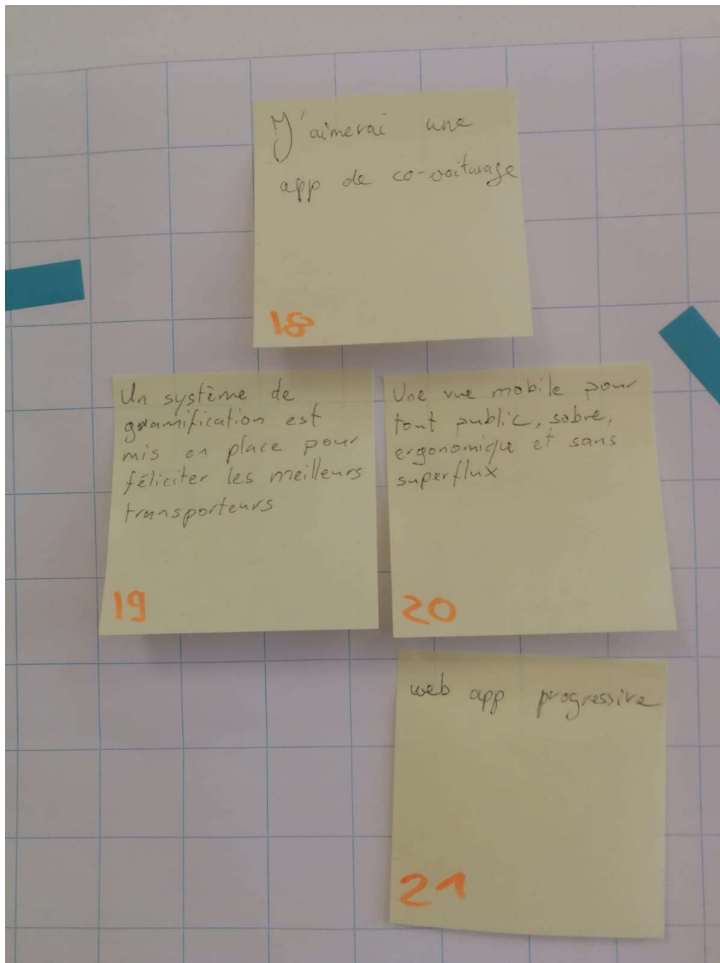 J'aimerai une
app de co-voiturage
18
Un système de
gamification est
mis en place pour
féliciter les meilleurs
transporteurs
19
Une vue mobile pour
tout public, sobre,
ergonomique et sans
superflux
20
web app progressive
21